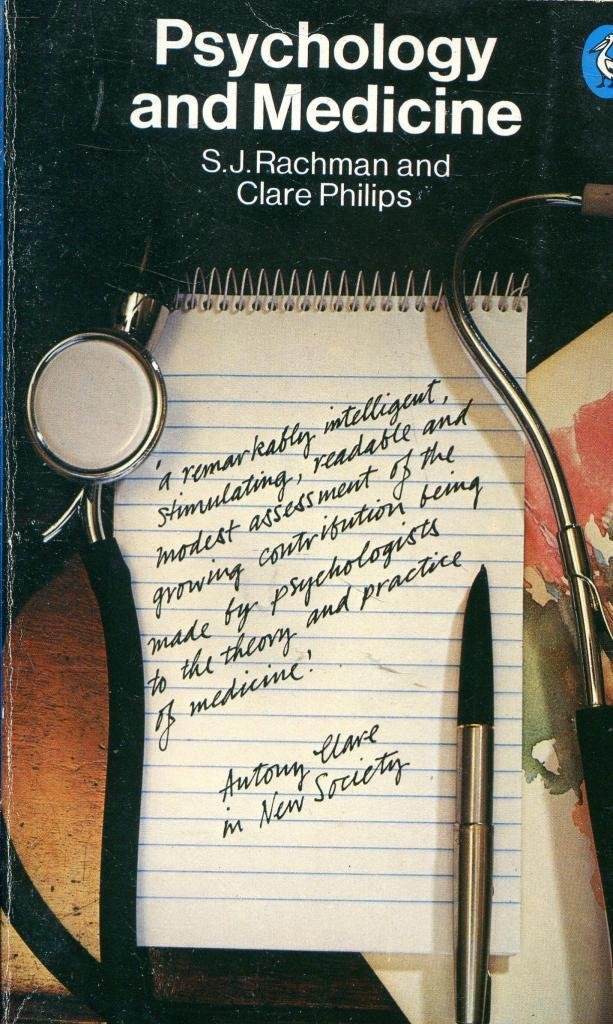 Psychology
and Medicine
S.J. Rachman and
Clare Philips
'a remarkably intelligent,
stimulating, readable and
modest assessment of the
growing contribution being
made by psychologists
to the theory and practice
of medicine!
Antony Clare
in New Society